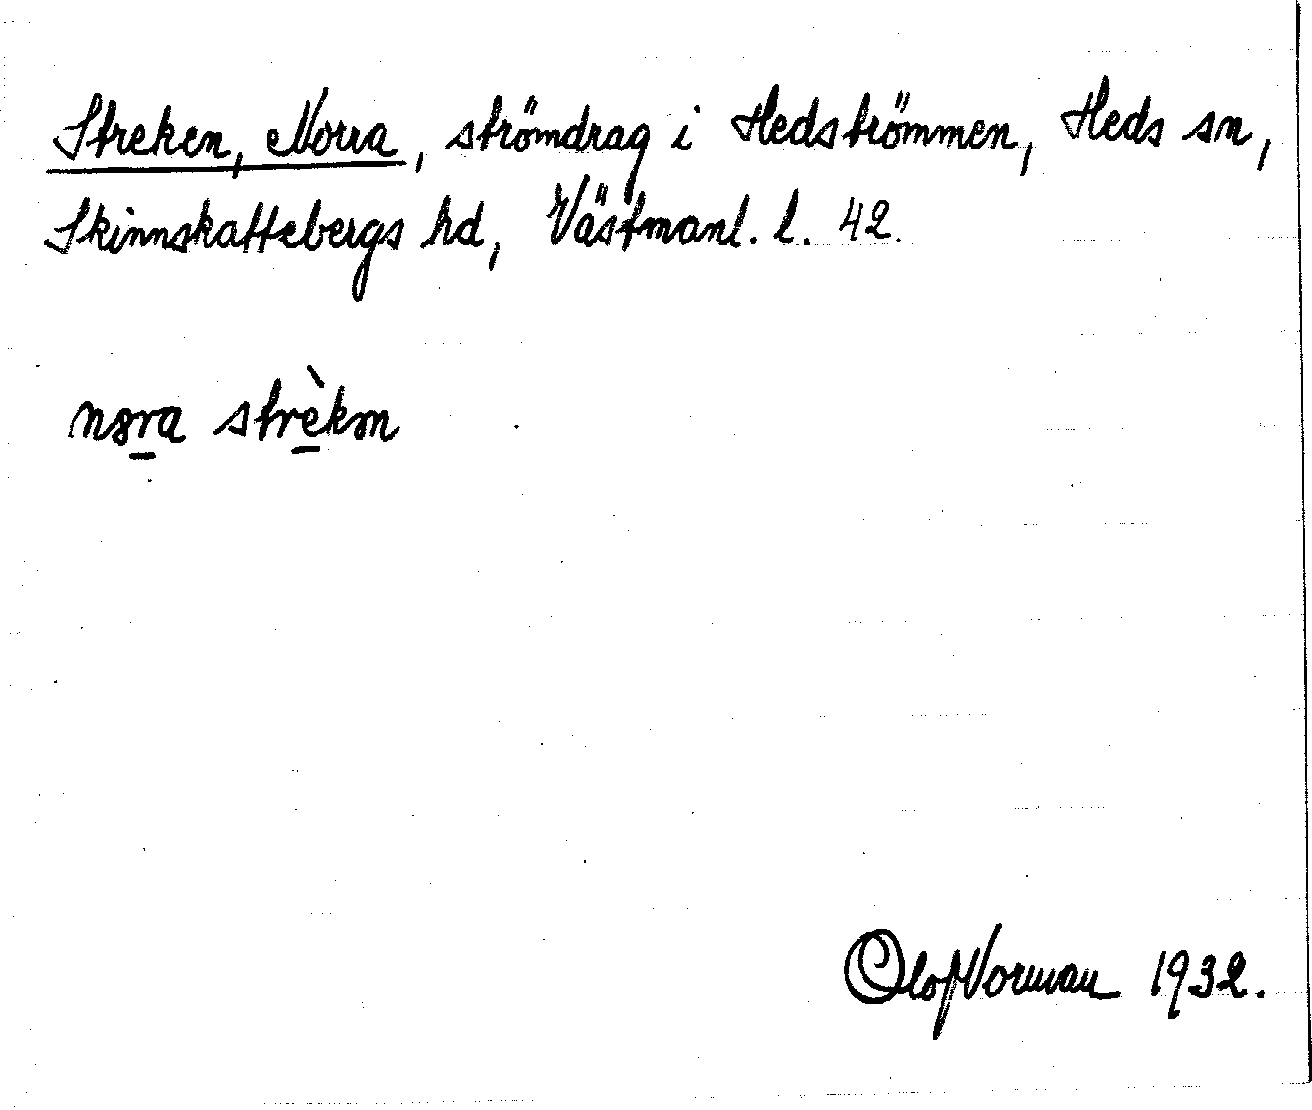 Streken, Norra, strömdrag i Hedströmmen, Heds sn,
Skinnskattebergs hd, Västmanl. l. 42.
nɷra strèkm
Olof Norman 1932.